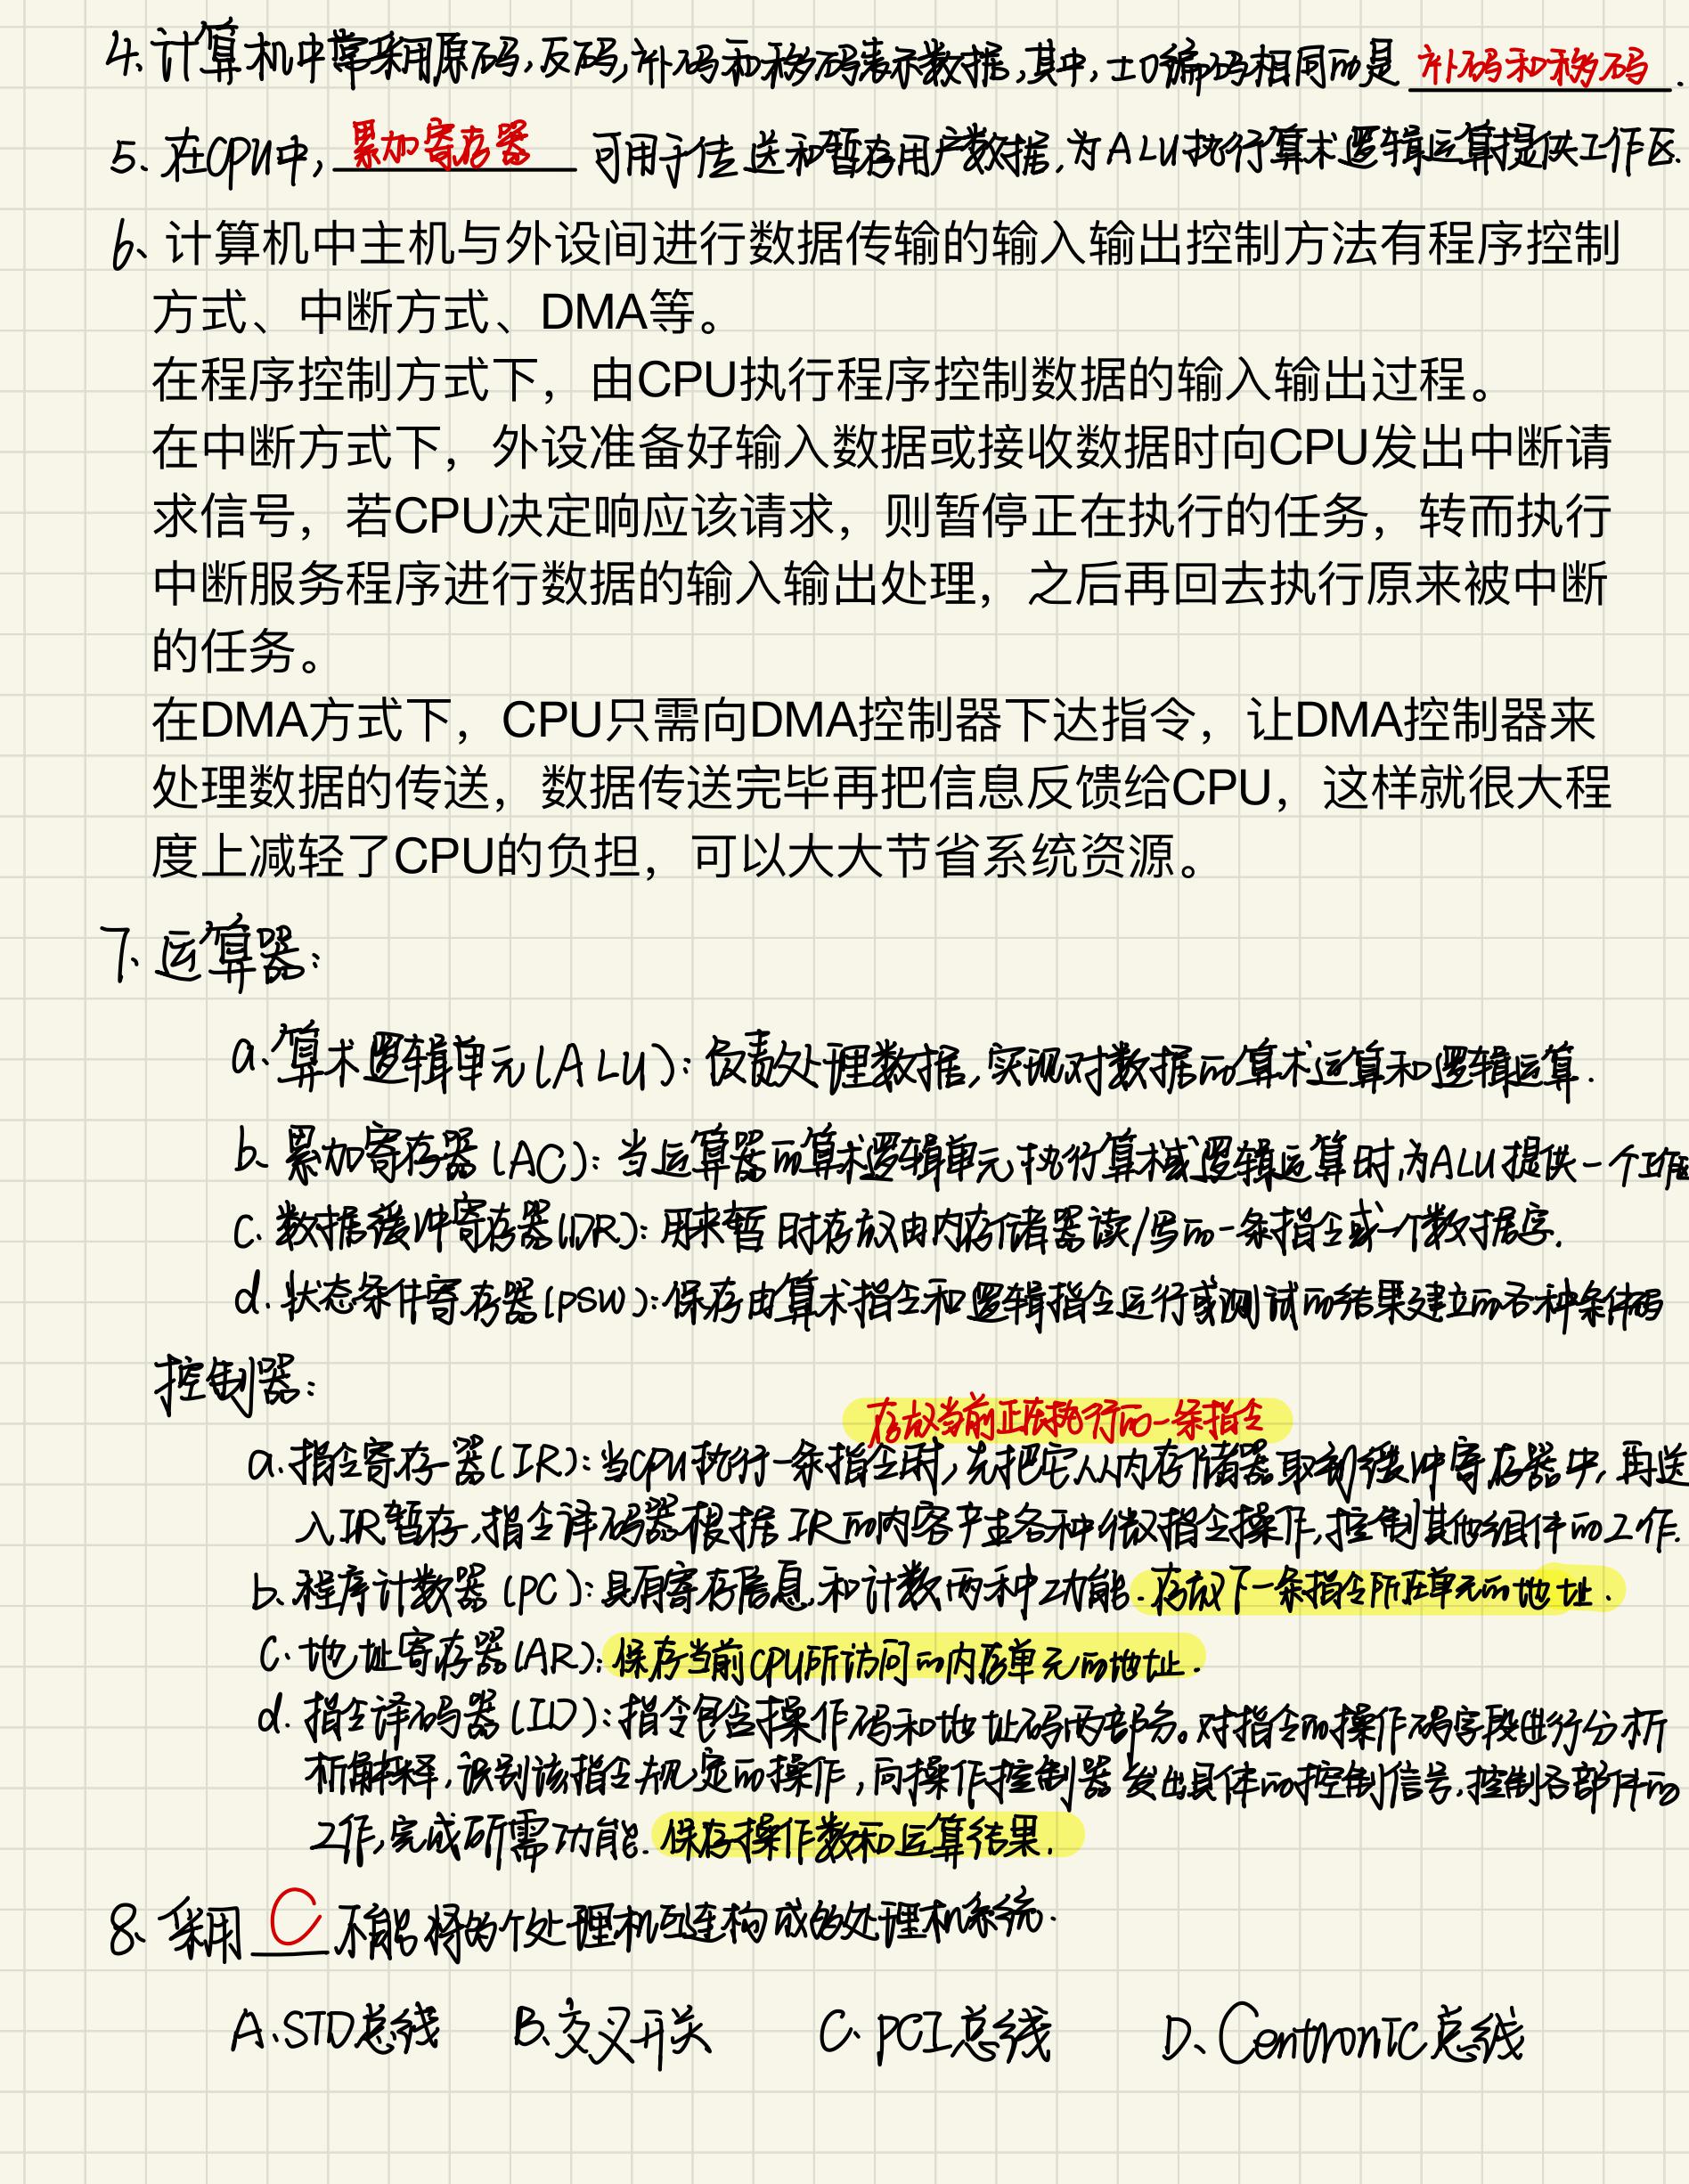 4.计算机中常采用原码,反码,补码和移码表示数据,其中,±0编码相同的是 补码和移码.
5、在CPU中, 累加寄存器 可用于传送和暂存用户数据,为ALU执行算术逻辑运算提供工作区.
6、计算机中主机与外设间进行数据传输的输入输出控制方法有程序控制
方式、中断方式、DMA等。
在程序控制方式下，由CPU执行程序控制数据的输入输出过程。
在中断方式下，外设准备好输入数据或接收数据时向CPU发出中断请
求信号，若CPU决定响应该请求，则暂停正在执行的任务，转而执行
中断服务程序进行数据的输入输出处理，之后再回去执行原来被中断
的任务。
在DMA方式下，CPU只需向DMA控制器下达指令，让DMA控制器来
处理数据的传送，数据传送完毕再把信息反馈给CPU，这样就很大程
度上减轻了CPU的负担，可以大大节省系统资源。
7、运算器：
a.算术逻辑单元(ALU)：负责处理数据,实现对数据的算术运算和逻辑运算.
b、累加寄存器(AC)：当运算器的算术逻辑单元执行算术或逻辑运算时,为ALU提供一个工作区
c.数据缓冲寄存器(DR)：用来暂时存放由内存储器读/写的一条指令或一个数据字.
d.状态条件寄存器(PSW)：保存由算术指令和逻辑指令运行或测试的结果建立的各种条件码
控制器：
存放当前正在执行的一条指令
a.指令寄存器(IR)：当CPU执行一条指令时,先把它从内存储器取到缓冲寄存器中,再送
入IR暂存,指令译码器根据IR的内容产生各种微指令操作,控制其他组件的工作.
b、程序计数器(PC)：具有寄存信息和计数两种功能.存放下一条指令所在单元的地址.
c.地址寄存器(AR)：保存当前CPU所访问的内存单元的地址.
d.指令译码器(ID)：指令包含操作码和地址码两部分。对指令的操作码字段进行分析
析解释,识别该指令规定的操作,向操作控制器发出具体的控制信号,控制各部件的
工作,完成所需功能.保存操作数和运算结果.
8、采用 C 不能将多个处理机互连构成多处理机系统.
A.STD总线 B、交叉开关 C、PCI总线 D、Centronic总线